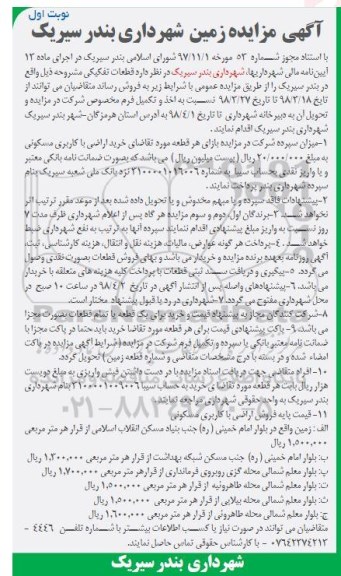 نوبت اول
آگهی مزایده زمین شهرداری بندر سیریک
با استناد مجوز شماره ۵۳ مورخه ۹۷/۱۱/۱ شورای اسلامی بندر سیریک در اجرای ماده ۱۳
آیین‌نامه مالی شهرداریها، شهرداری بندر سیریک در نظر دارد قطعات تفکیکی مشروحه ذیل واقع
در بندر سیریک را از طریق مزایده عمومی با شرایط زیر به فروش رساند متقاضیان می توانند از
تاریخ ۹۸/۲/۱۸ تا تاریخ ۹۸/۲/۲۷ نسبت به اخذ و تکمیل فرم مخصوص شرکت در مزایده و
تحویل آن به دبیرخانه شهرداری تا تاریخ ۹۸/۴/۱ به آدرس استان هرمزگان-شهر بندر سیریک
شهرداری بندر سیریک اقدام نمایند.
۱-میزان سپرده شرکت در مزایده بازای هر قطعه مورد تقاضای خرید اراضی با کاربری مسکونی
به مبلغ ۲۰/۰۰۰/۰۰۰ ریال (بیست میلیون ریال) می باشد که بصورت ضمانت نامه بانکی معتبر
و یا واریز نقدی بحساب سیبا به شماره ۲۱۰۰۰۰۱۰۱۶۰۰۶ نزد بانک ملی شعبه سیریک بنام
سپرده شهرداری بندر پرداخت نمایند.
۲-پیشنهادات فاقد سپرده و یا مبهم مخدوش و یا تحویل داده شده بعد از موعد مقرر ترتیب اثر
نخواهد شد. ۳-برندگان اول، دوم و سوم مزایده هر گاه پس از اعلام شهرداری ظرف مدت ۷
روز نسبت به واریز مبلغ پیشنهادی اقدام ننمایند سپرده آنها به ترتیب به نفع شهرداری ضبط
خواهد شد. ۴-پرداخت هر گونه عوارض، مالیات، هزینه نقل و انتقال، هزینه کارشناسی، ثبت،
آگهی روزنامه بعهده برنده مزایده و خریدار می باشد و بهای فروش قطعات بصورت نقدی وصول
می گردد. ۵-پیگیری و دریافت سند ثبتی قطعات با پرداخت کلیه هزینه های متعلقه با خریدار
می باشد. ۶-پیشنهادهای واصله پس از انتشار آگهی در تاریخ ۹۸/۴/۲ در ساعت ۱۰ صبح در
محل شهرداری مفتوح می گردد. ۷-شهرداری در رد یا قبول پیشنهاد مختار است.
۸-شرکت کنندگان مجاز به پیشنهاد قیمت و خرید برای یک قطعه یا تمام قطعات بصورت مجزا
می باشد. ۹-پاکت پیشنهادی قیمت برای هر قطعه مورد تقاضا خرید باید حتما در پاکت مجزا با
ضمانت نامه معتبر بانکی یا سپرده و تکمیل فرم شرکت در مزایده (شرایط آگهی مزایده در پاکت
امضاء شده و در بسته با درج مشخصات متقاضی و شماره قطعه زمین) تحویل گردد.
۱۰-افراد متقاضی جهت دریافت اسناد مزایده با در دست داشتن فیش واریزی به مبلغ دویست
هزار ریال بابت هر قطعه مورد تقاضای خرید به حساب سیبا ۲۱۰۰۰۰۱۰۰۹۰۰۶ بنام شهرداری
بندر سیریک به واحد حقوقی شهرداری مراجعه نمایند.
۱۱-قیمت پایه فروش اراضی با کاربری مسکونی
الف: زمین واقع در بلوار امام خمینی (ره) جنب بنیاد مسکن انقلاب اسلامی از قرار هر متر مربعی
۱,۵۰۰,۰۰۰ ریال
ب: بلوار امام خمینی (ره) جنب مسکن شبکه بهداشت از قرار هر متر مربعی ۱,۲۰۰,۰۰۰ ریال
پ: بلوار معلم شمالی محله گزی روبروی فرمانداری از قرار هر متر مربعی ۱,۷۰۰,۰۰۰ ریال
ت: بلوار معلم شمالی محله طاهرونیه از قرار هر متر مربعی ۱,۵۰۰,۰۰۰ ریال
ث: بلوار معلم شمالی محله بیلایی از قرار هر متر مربعی ۱,۵۰۰,۰۰۰ ریال
ج: بلوار معلم شمالی محله طاهرونی از قرار هر متر مربعی ۱,۶۰۰,۰۰۰ ریال
متقاضیان می توانند در صورت نیاز با کسب اطلاعات بیشتر با شماره تلفن ۴۴۴۶ -
۰۷۶۴۲۲۷۴۲۱۳ - با کارشناس حقوقی تماس حاصل نمایند.
شهرداری بندر سیریک